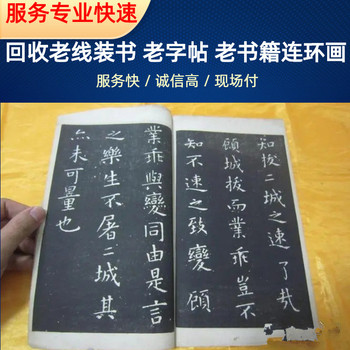 服务专业快速
回收老线装书 老字帖 老书籍连环画
服务快 / 诚信高 / 现场付
知拔二城之速了哉
顧城拔而業乖豈不
知不速之致變顧
業乖與變同由是言
之樂生不屠二城其
亦未可量也